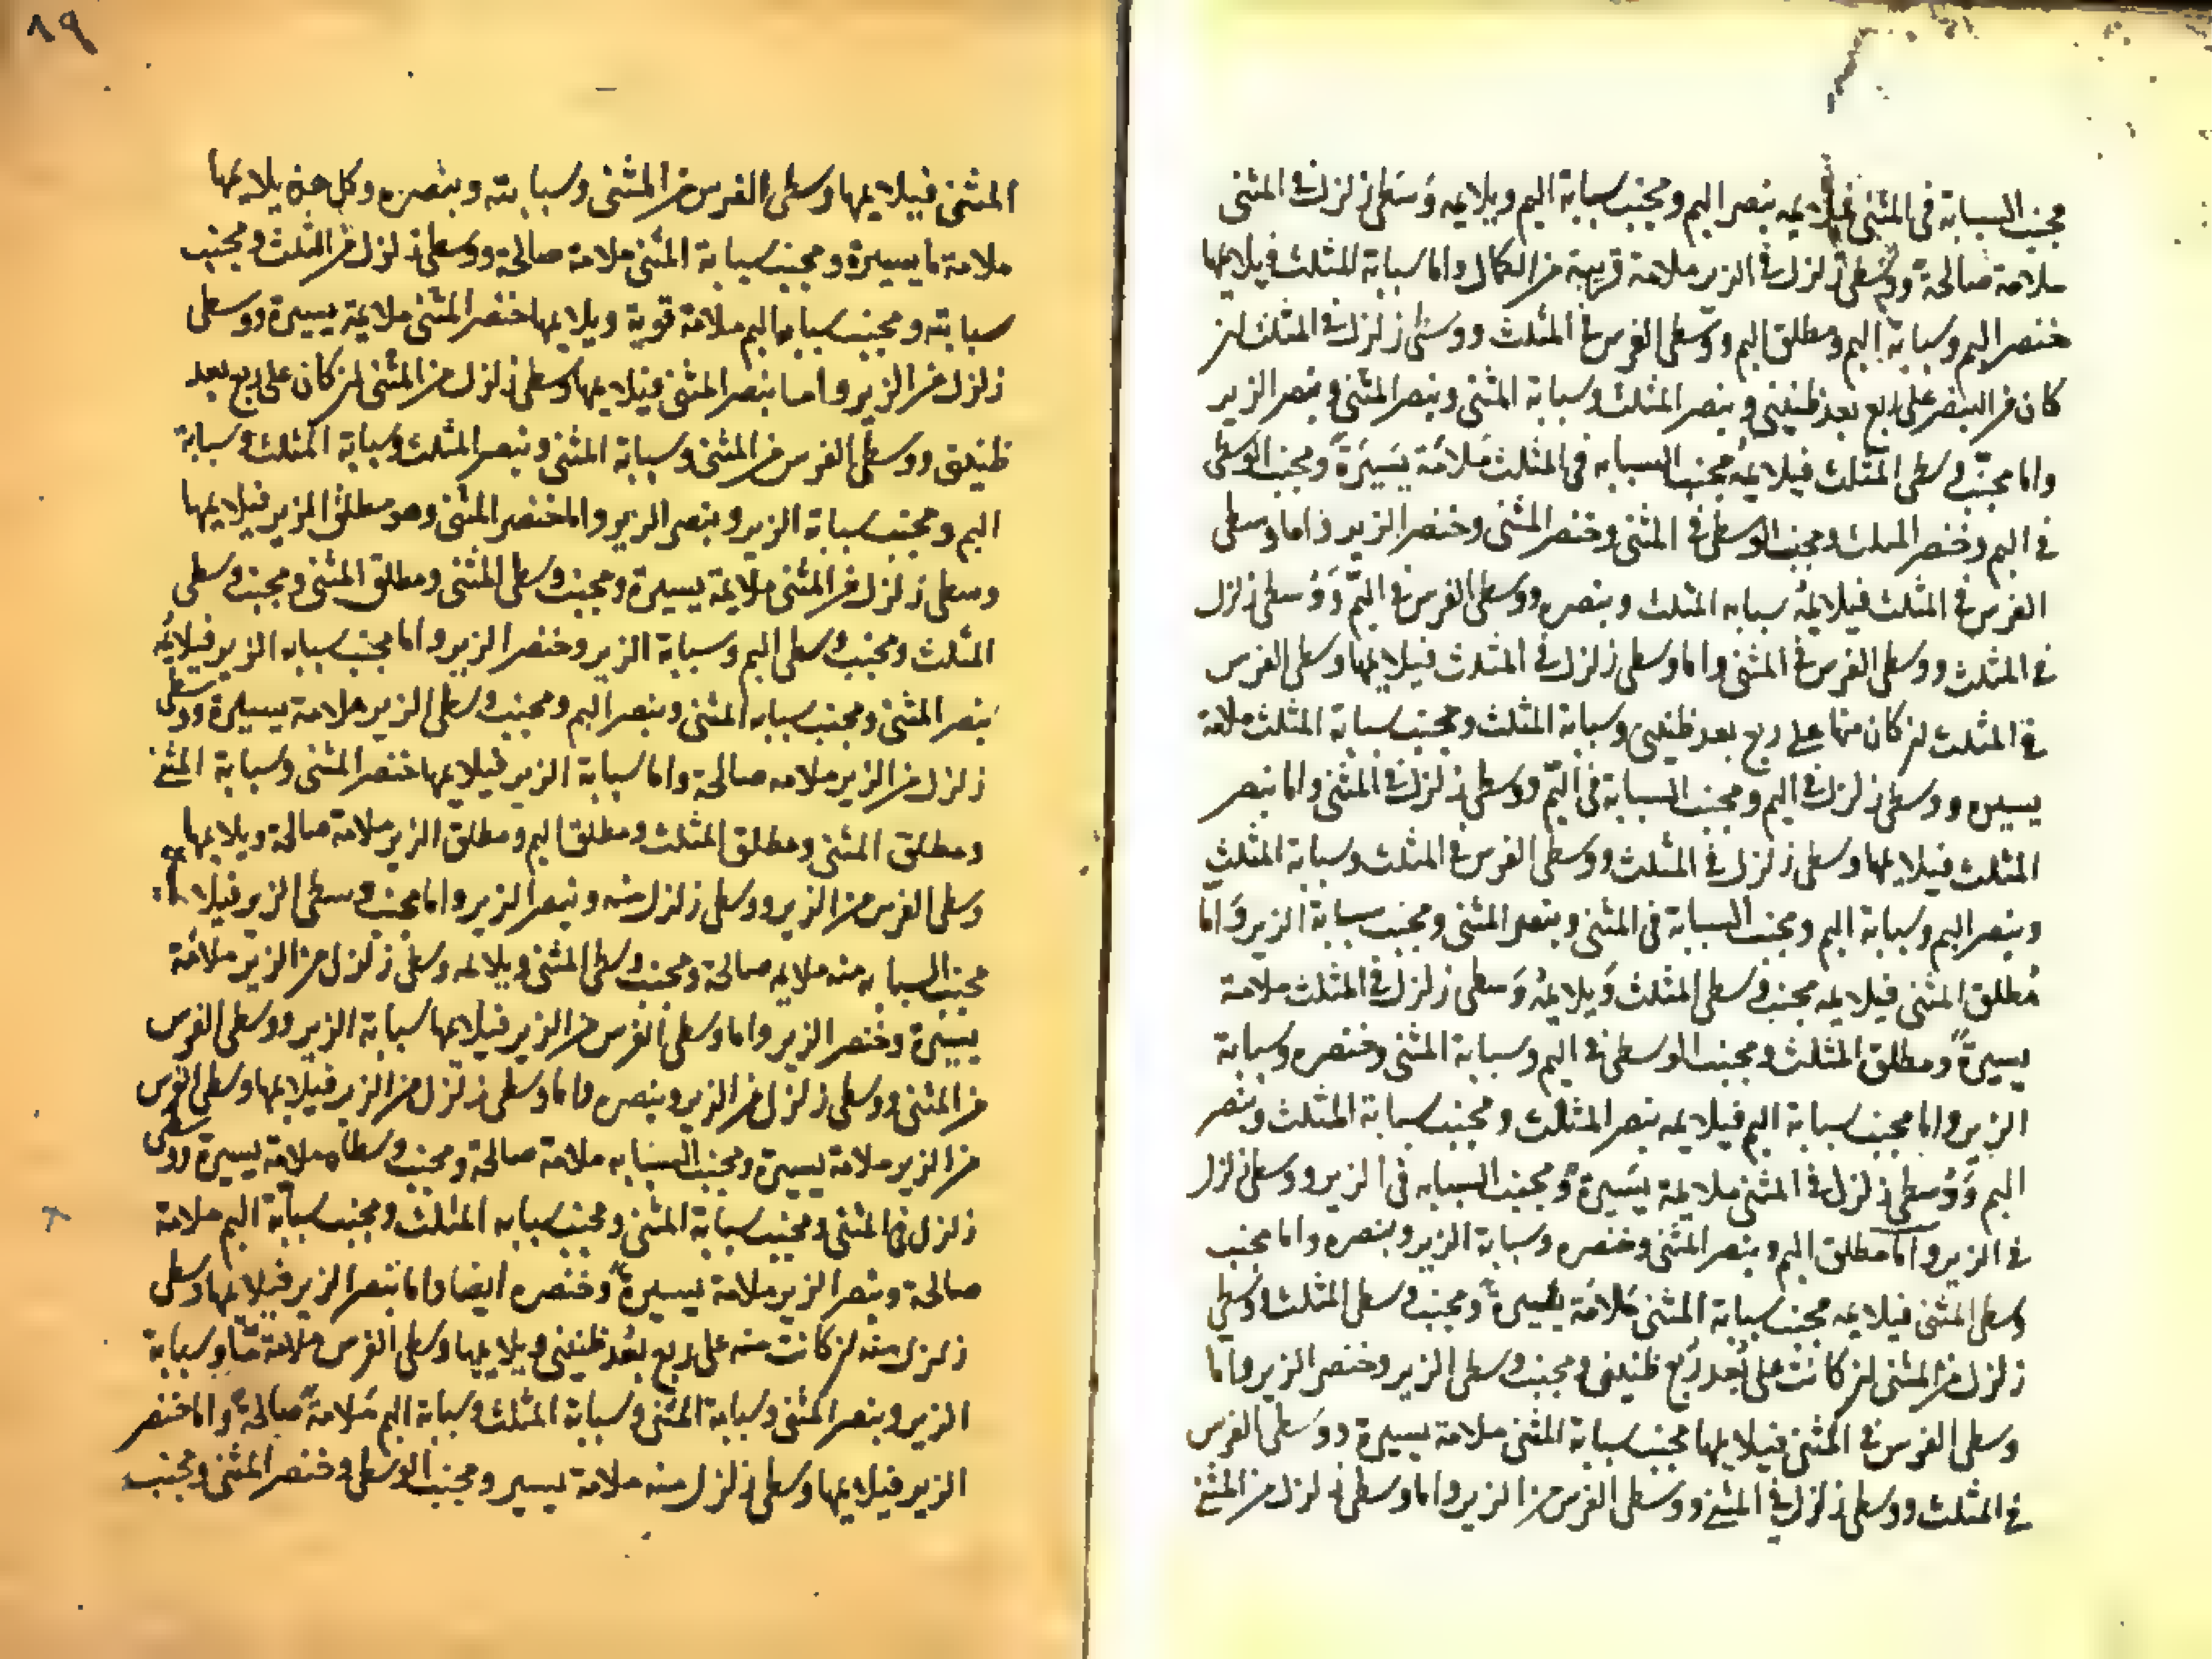 مجنب السبابة فى المثنى فيلايمه بنصر اليم ومجنب سبابة اليم ويلايمه وسطى زلزل فى المثنى
ملامة صالحة ووسطى زلزل فى الزير ملامة قريبة من الكمال واما سبابة المثلث فيلايمها
خنصر اليم وسبابة اليم ومطلق اليم ووسطى الفرس فى المثلث ووسطى زلزل فى المثلث ان
كان من البنصر على ربع بعد طنينى وبنصر المثلث وسبابة المثنى وبنصر المثنى وبنصر الزير
واما مجنب وسطى المثلث فيلايمه مجنب السبابه فى المثلث ملامة يسيرة ومجنب الوسطى
فى اليم وخنصر المثلث ومجنب الوسطى فى المثنى وخنصر المثنى وخنصر الزير واما وسطى
الفرس فى المثلث فيلايمه سبابه المثلث وبنصره ووسطى الفرس فى اليم ووسطى زلزل
فى المثلث ووسطى الفرس فى المثنى واما وسطى زلزل فى المثلث فيلايمها وسطى الفرس
فى المثلث ان كان منها على ربع بعد طنينى وسبابة المثلث ومجنب سبابة المثلث ملامة
يسيره ووسطى زلزل فى اليم ومجنب السبابة فى اليم ووسطى زلزل فى المثنى واما بنصر
المثلث فيلايمها وسطى زلزل فى المثلث ووسطى الفرس فى المثلث وسبابة المثلث
وبنصر اليم وسبابة اليم ومجنب السبابة فى المثنى وبنصر المثنى ومجنب سبابة الزير واما
مطلق المثنى فيلايمه مجنب وسطى المثلث ويلايمه وسطى زلزل فى المثلث ملامة
يسيرة ومطلق المثلث ومجنب الوسطى فى اليم وسبابة المثنى وخنصره وسبابة
الزير واما مجنب سبابة اليم فيلايمه بنصر المثلث ومجنب سبابة المثلث وبنصر
اليم ووسطى زلزل فى المثنى ملايمة يسيرة ومجنب السبابه فى الزير ووسطى زلزل
فى الزير واما مطلق اليم وبنصر المثنى وخنصره وسبابة الزير وبنصره واما مجنب
وسطى المثنى فيلايمه مجنب سبابة المثنى ملامة يسيرة ومجنب وسطى المثلث ووسطى
زلزل من المثنى ان كانت على بعد ربع طنينى ومجنب وسطى الزير وخنصر الزير واما
وسطى الفرس فى المثنى فيلايمها مجنب سبابة المثنى ملامة يسيرة ووسطى الفرس
فى المثلث ووسطى زلزل فى المثنى ووسطى الفرس من الزير واما وسطى زلزل من المثنى
١٩
المثنى فيلايمها وسطى الفرس من المثنى وسبابته وبنصره وكل هذه يلايمها
ملامة ما يسيرة ومجنب سبابة المثنى ملامة صالحة ووسطى زلزل من المثلث ومجنب
سبابته ومجنب سبابه اليم ملامة قوية ويلايمها خنصر المثنى ملايمة يسيرة ووسطى
زلزل من الزير واما بنصر المثنى فيلايمها وسطى زلزل من المثنى ان كان على ربع بعد
طنينى ووسطى الفرس من المثنى وسبابة المثنى وبنصر المثلث وسبابة المثلث وسبابة
اليم ومجنب سبابة الزير وبنصر الزير واما خنصر المثنى وهو مطلق الزير فيلايمها
وسطى زلزل من المثنى ملايمة يسيرة ومجنب وسطى المثنى ومطلق المثنى ومجنب وسطى
المثلث ومجنب وسطى اليم وسبابة الزير وخنصر الزير واما مجنب سبابه الزير فيلايمه
بنصر المثنى ومجنب سبابه المثنى وبنصر اليم ومجنب وسطى الزير ملامة يسيرة ووسطى
زلزل من الزير ملامه صالحة واما سبابة الزير فيلايمها خنصر المثنى وسبابة المثنى
ومطلق المثنى ومطلق المثلث ومطلق اليم ومطلق الزير ملامة صالحة ويلايمها
وسطى الفرس من الزير ووسطى زلزل منه وبنصر الزير واما مجنب وسطى الزير فيلايمه
مجنب السبابه منه ملايمه صالحة ومجنب وسطى المثنى ويلايمه وسطى زلزل من الزير ملامة
يسيرة وخنصر الزير واما وسطى الفرس من الزير فيلايمها سبابة الزير ووسطى الفرس
من المثنى ووسطى زلزل من الزير وبنصره واما وسطى زلزل من الزير فيلايمها وسطى الفرس
من الزير ملامة يسيرة ومجنب السبابه ملامة صالحة ومجنب وسطاه ملامة يسيرة ووسطى
زلزل فى المثنى ومجنب سبابة المثنى ومجنب سبابه المثلث ومجنب سبابة اليم ملامة
صالحة وبنصر الزير ملامة يسيرة وخنصره ايضا واما بنصر الزير فيلايمها وسطى
زلزل منه ان كانت منه على ربع بعد طنينى ويلايمها وسطى الفرس ملامة ما وسبابة
الزير وبنصر المثنى وسبابة المثنى وسبابة المثلث وسبابة اليم ملامة صالحة واما خنصر
الزير فيلايمها وسطى زلزل منه ملامة يسير ومجنب الوسطى وخنصر المثنى ومجنب